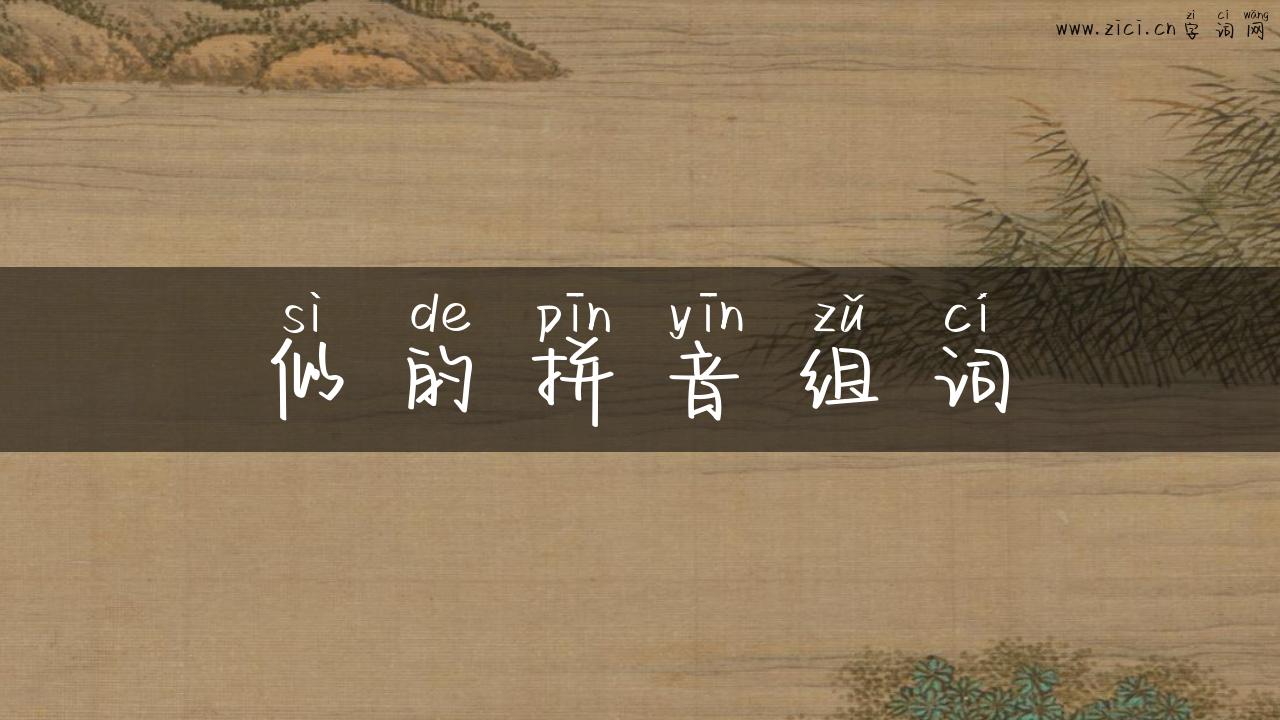 zì cí wǎng
www.zici.cn 字词网
sì de pīn yīn zǔ cí
似的拼音组词